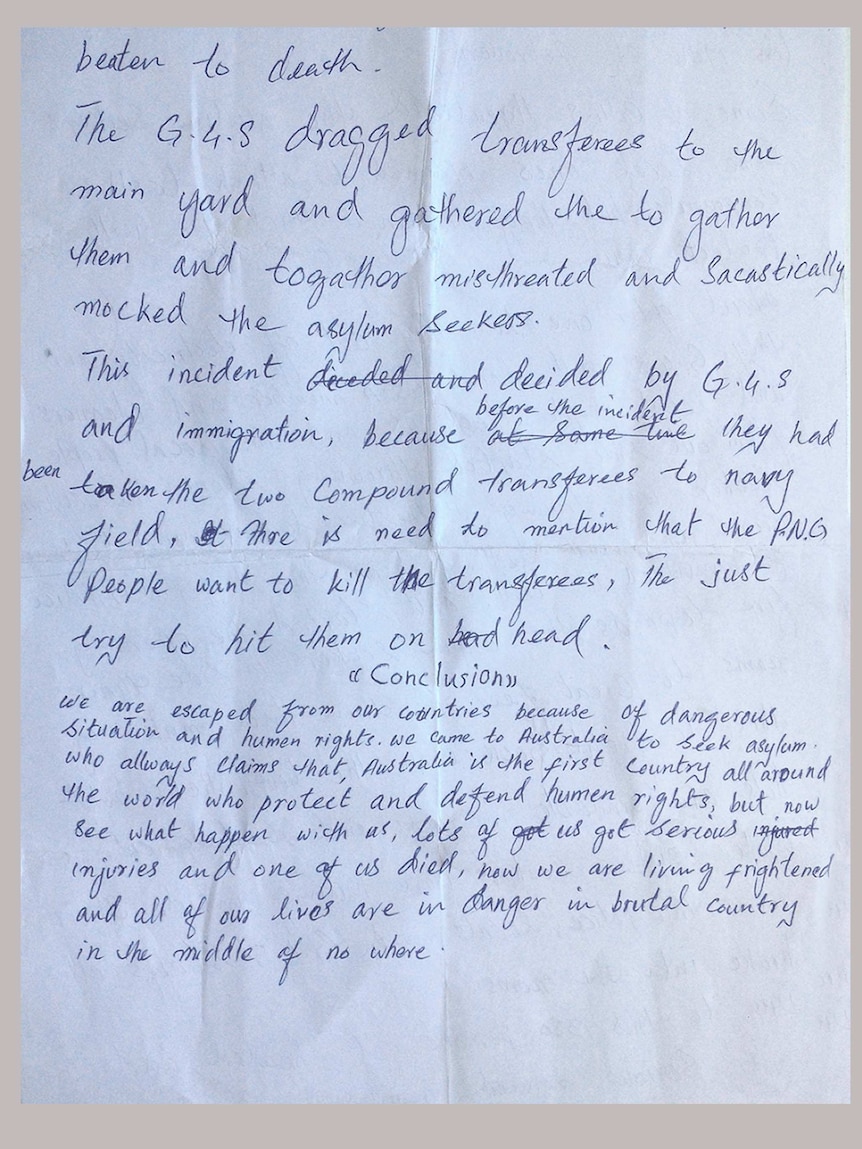 beaten to death.
The G.4.S dragged transferees to the
main yard and gathered the to gather
them and togathor misthreated and Sacastically
mocked the asylum Seekers.
This incident diceded and decided by G.4.S
before the incident
and immigration, because at Same time they had
been taken the two Compound transferees to navy
field, thre is need to mention that the P.N.G
People want to kill the transferees, The just
try to hit them on had head.
“Conclusion”
we are escaped from our countries because of dangerous
Situation and human rights. we came to Australia to Seek asylum.
who allways Claims that, Australia is the first Country all around
the world who protect and defend human rights, but now
See what happen with us, lots of got us got Serious injured
injuries and one of us died, now we are living frightened
and all of our lives are in danger in brutal Country
in the middle of no where.